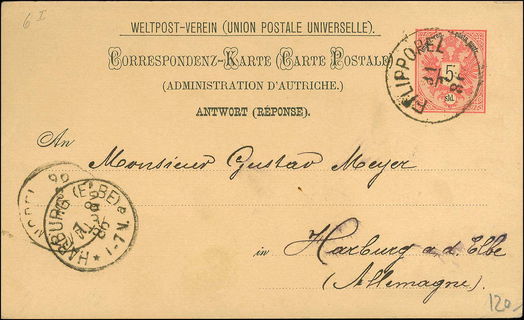 6 I
WELTPOST-VEREIN (UNION POSTALE UNIVERSELLE).
CORRESPONDENZ-KARTE (CARTE POSTALE)
(ADMINISTRATION D'AUTRICHE.)
ANTWORT (RÉPONSE).
5
sld.
An
Monsieur Gustav Meyer
HARBURG (ELBE)
1-7 N.
in Harburg a. d. Elbe
(Allemagne)
120.-